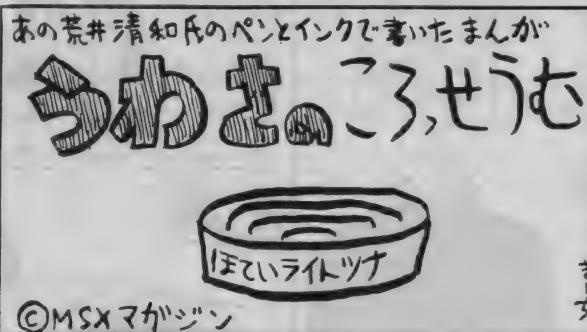 あの荒井清和氏のペンとインクで書いたまんが
うわさのころっせうむ
ほていライトツナ
©MSXマガジン